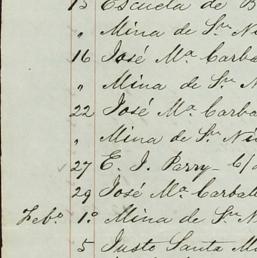 15 Escuela de B
" Mina de Sn. Ni
16 José Ma. Carba
" Mina de Sn. N
22 José Ma. Carba
" Mina de Sn. Ni
27 E. J. Parry c/
29 José Ma. Carball
Febo. 1.o Mina de Sn. N
5 Justo Santa M